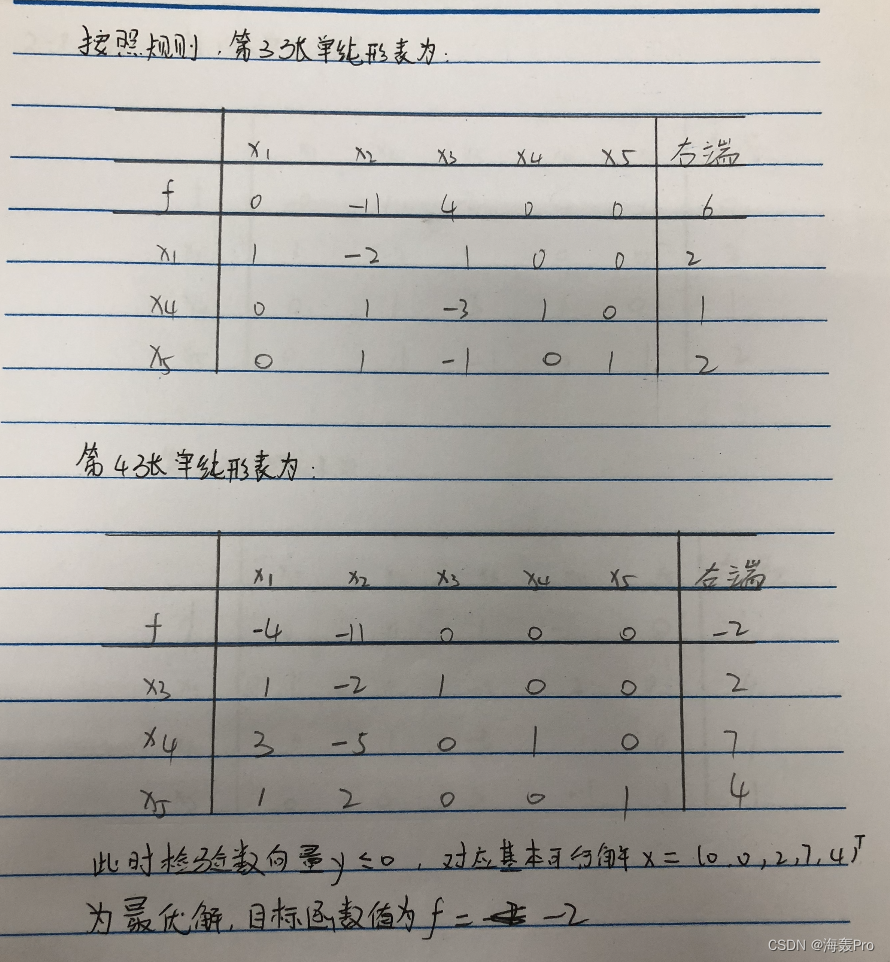 按照规则，第3张单纯形表为：
x1 x2 x3 x4 x5 右端
f 0 -11 4 0 0 6
x1 1 -2 1 0 0 2
x4 0 1 -3 1 0 1
x5 0 1 -1 0 1 2
第4张单纯形表为：
x1 x2 x3 x4 x5 右端
f -4 -11 0 0 0 -2
x3 1 -2 1 0 0 2
x4 3 -5 0 1 0 7
x5 1 2 0 0 1 4
此时检验数向量y≤0，对应基本可行解x=(0,0,2,7,4)ᵀ
为最优解，目标函数值为f= -2
CSDN @海轰Pro